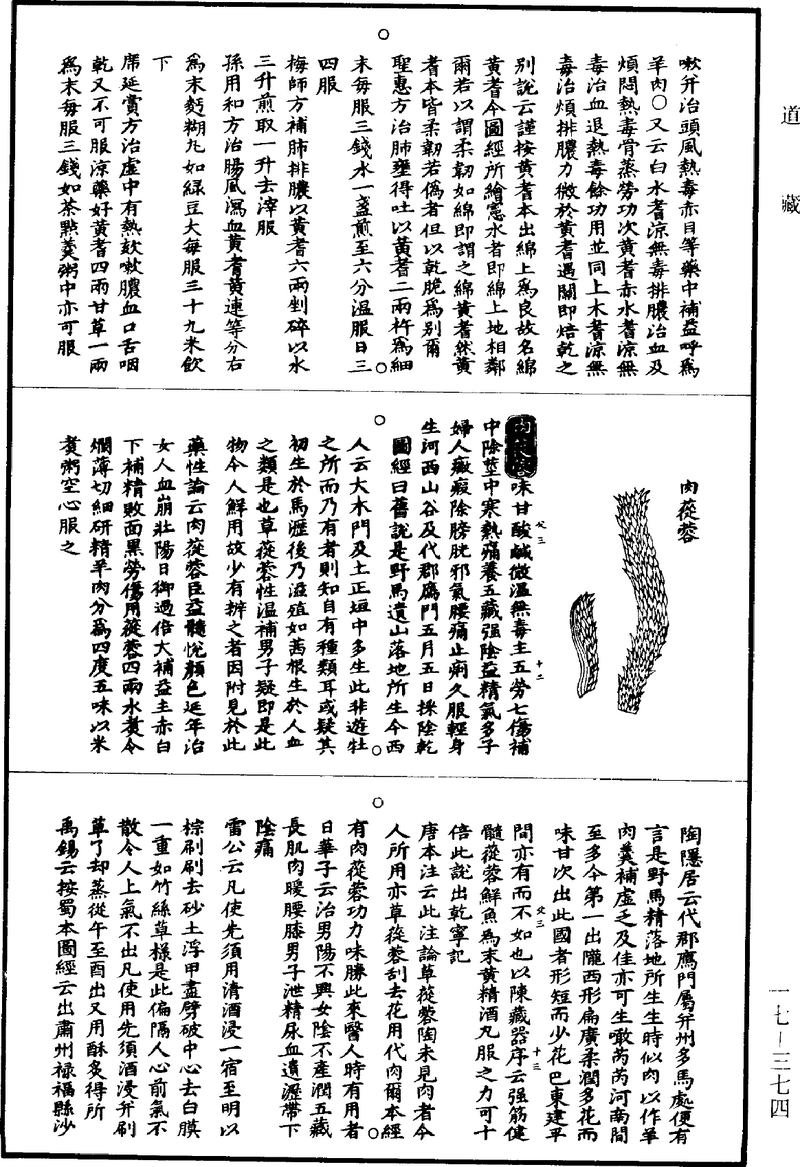 道藏
嗽并治頭風熱毒赤目等藥中補益呼爲
羊肉○又云白水耆涼無毒排膿治血及
煩悶熱毒骨蒸勞功次黃耆赤水耆涼無
毒治血退熱毒餘功用並同上木耆涼無
毒治煩排膿力微於黃耆遇闕即焙乾之
別說云謹按黃耆本出綿上爲良故名綿
黃耆今圖經所繪憲水者即綿上地相鄰
爾若以謂柔韌如綿即謂之綿黃耆然黃
耆本皆柔韌若僞者但以乾脆爲別爾
聖惠方治肺壅得吐以黃耆二兩杵爲細
末每服三錢水一盞煎至六分溫服日三
四服
梅師方補肺排膿以黃耆六兩剉碎以水
三升煎取一升去滓服
孫用和方治腸風瀉血黃耆黃連等分右
爲末麪糊丸如綠豆大每服三十九米飲
下
席延賞方治虛中有熱欬嗽膿血口舌咽
乾又不可服涼藥好黃耆四兩甘草一兩
爲末每服三錢如茶點羹粥中亦可服
肉蓯蓉
肉蓯蓉味甘酸鹹微溫無毒主五勞七傷補
中除莖中寒熱痛養五藏强陰益精氣多子
婦人癥瘕除膀胱邪氣腰痛止痢久服輕身
生河西山谷及代郡鴈門五月五日採陰乾
圖經曰舊說是野馬遺山落地所生今西
人云大木門及土正垣中多生此非遊牡
之所而乃有者則知自有種類耳或疑其
初生於馬瀝後乃滋殖如茜根生於人血
之類是也草蓯蓉性溫補男子疑即是此
物今人鮮用故少有辨之者因附見於此
藥性論云肉蓯蓉臣益髓悅顏色延年治
女人血崩壯陽日御過倍大補益主赤白
下補精敗面黑勞傷用蓯蓉四兩水煑令
爛薄切細研精羊肉分爲四度五味以米
煑粥空心服之
陶隱居云代郡鴈門屬并州多馬處便有
言是野馬精落地所生生時似肉以作羊
肉羹補虛乏及佳亦可生噉芮芮河南間
至多今第一出隴西形扁廣柔潤多花而
味甘次出北國者形短而少花巴東建平
間亦有而不如也以陳藏器序云强筋健
髓蓯蓉鮮魚爲末黃精酒丸服之力可十
倍此說出乾寧記
唐本注云此注論草蓯蓉陶未見肉者今
人所用亦草蓯蓉刮去花用代肉爾本經
有肉蓯蓉功力味勝此來醫人時有用者
日華子云治男陽不興女陰不產潤五藏
長肌肉暖腰膝男子泄精尿血遺瀝帶下
陰痛
雷公云凡使先須用清酒浸一宿至明以
棕刷刷去砂土浮甲盡劈破中心去白膜
一重如竹絲草樣是此偏隔人心前氣不
散令人上氣不出凡使用先須酒浸并刷
草了却蒸從午至酉出又用酥炙得所
禹錫云按蜀本圖經云出肅州祿福縣沙
一七–三七四